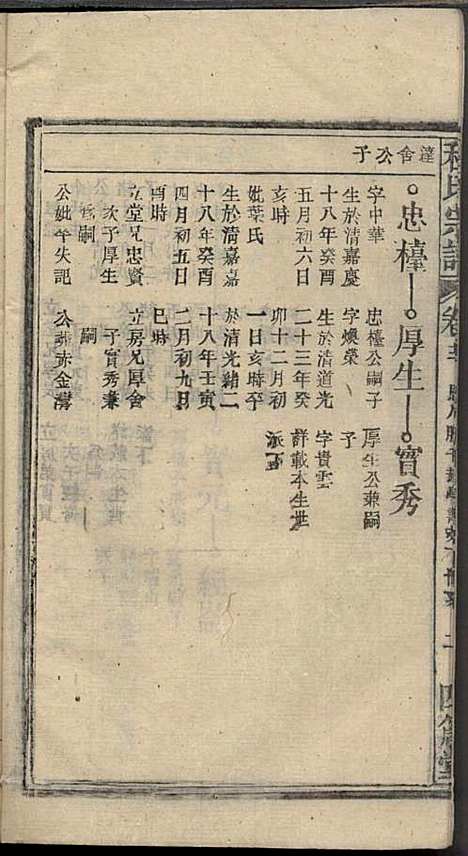 達舍公子
忠檯 厚生 實秀
字中華
生於清嘉慶
十八年癸酉
五月初六日
亥時
妣葉氏
生於清嘉嘉
十八年癸酉
四月初五日
酉時
立堂兄忠賢
次子厚生
爲嗣
公妣卒失記
忠檯公嗣子
字煥榮
生於清道光
二十三年癸
卯十二月初
一日亥時卒
於清光緒二
十八年壬寅
二月初九日
巳時
立房兄厚舍
子實秀兼
嗣
公葬赤金灣
厚生公兼嗣
子
字貴雲
詳載本生世
派上
程氏宗譜 卷